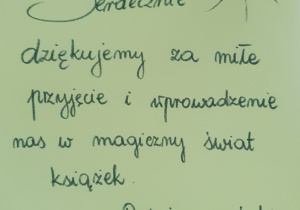 Serdecznie
dziękujemy za miłe
przyjęcie i wprowadzenie
nas w magiczny świat
książek.